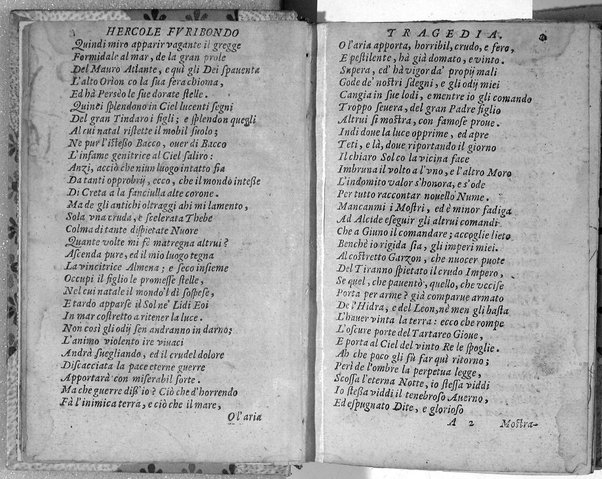 HERCOLE FVRIBONDO
Quindi miro apparir vagante il gregge
Formidale al mar, de la gran prole
Del Mauro Atlante, e quì gli Dei spauenta
L'alto Orion co la sua fera chioma,
Ed hà Persèo le sue dorate stelle.
Quinci splendono in Ciel lucenti segni
Del gran Tindaro i figli; e splendon quegli
Al cui natal ristette il mobil suolo;
Ne pur l'istesso Bacco, ouer di Bacco
L'infame genitrice al Ciel saliro:
Anzi, acciò che niun luogo intatto sia
Da tanti opprobrij, ecco, che il mondo intesse
Di Creta a la fanciulla alte corone.
Ma de gli antichi oltraggi ahi mi lamento,
Sola vna cruda, e scelerata Thebe
Colma di tante dispietate Nuore
Quante volte mi fè matregna altrui?
Ascenda pure, ed il mio luogo tegna
La vincitrice Almena; e seco insieme
Occupi il figlio le promesse stelle,
Nel cui natale il mondo 'l dì sospese,
E tardo apparse il Sol ne' Lidi Eoi
In mar costretto a ritener la luce.
Non così gli odij sen andranno in darno;
L'animo violento ire viuaci
Andrà suegliando, ed il crudel dolore
Discacciata la pace eterne guerre
Apportarà con miserabil sorte.
Ma che guerre diss'io? Ciò che d'horrendo
Fà l'inimica terra, e ciò che il mare,
O l'aria
TRAGEDIA.
O l'aria apporta, horribil, crudo, e fero,
E pestilente, hà già domato, e vinto.
Supera, ed' hà vigor da' proprij mali
Gode de' nostri sdegni, e gli odij miei
Cangia in sue lodi, e mentre io gli comando
Troppo seuera, del gran Padre figlio
Altrui si mostra, con famose proue.
Indi doue la luce opprime, ed apre
Teti, e là, doue riportando il giorno
Il chiaro Sol co la vicina face
Imbruna il volto a l'vno, e l'altro Moro
L'indomito valor s'honora, e s'ode
Per tutto raccontar nouello Nume.
Mancanmi i Mostri, ed è minor fadiga
Ad Alcide eseguir gli altrui comandi
Che a Giuno il comandare; accoglie lieto
Benchè io rigida sia, gli imperi miei.
Al costretto Garzon, che nuocer puote
Del Tiranno spietato il crudo Impero,
Se quel, che pauentò, quello, che vccise
Porta per arme? già comparue armato
De l'Hidra, e del Leon, nè men gli basta
L'hauer vinta la terra: ecco che rompe
L'oscure porte del Tartareo Gioue,
E porta al Ciel del vinto Re le spoglie.
Ah che poco gli fù far quì ritorno;
Perì de l'ombre la perpetua legge,
Scossa l'eterna Notte, io stessa viddi
Io stessa viddi il tenebroso Auerno,
Ed espugnato Dite, e glorioso
A 2 Mostra-